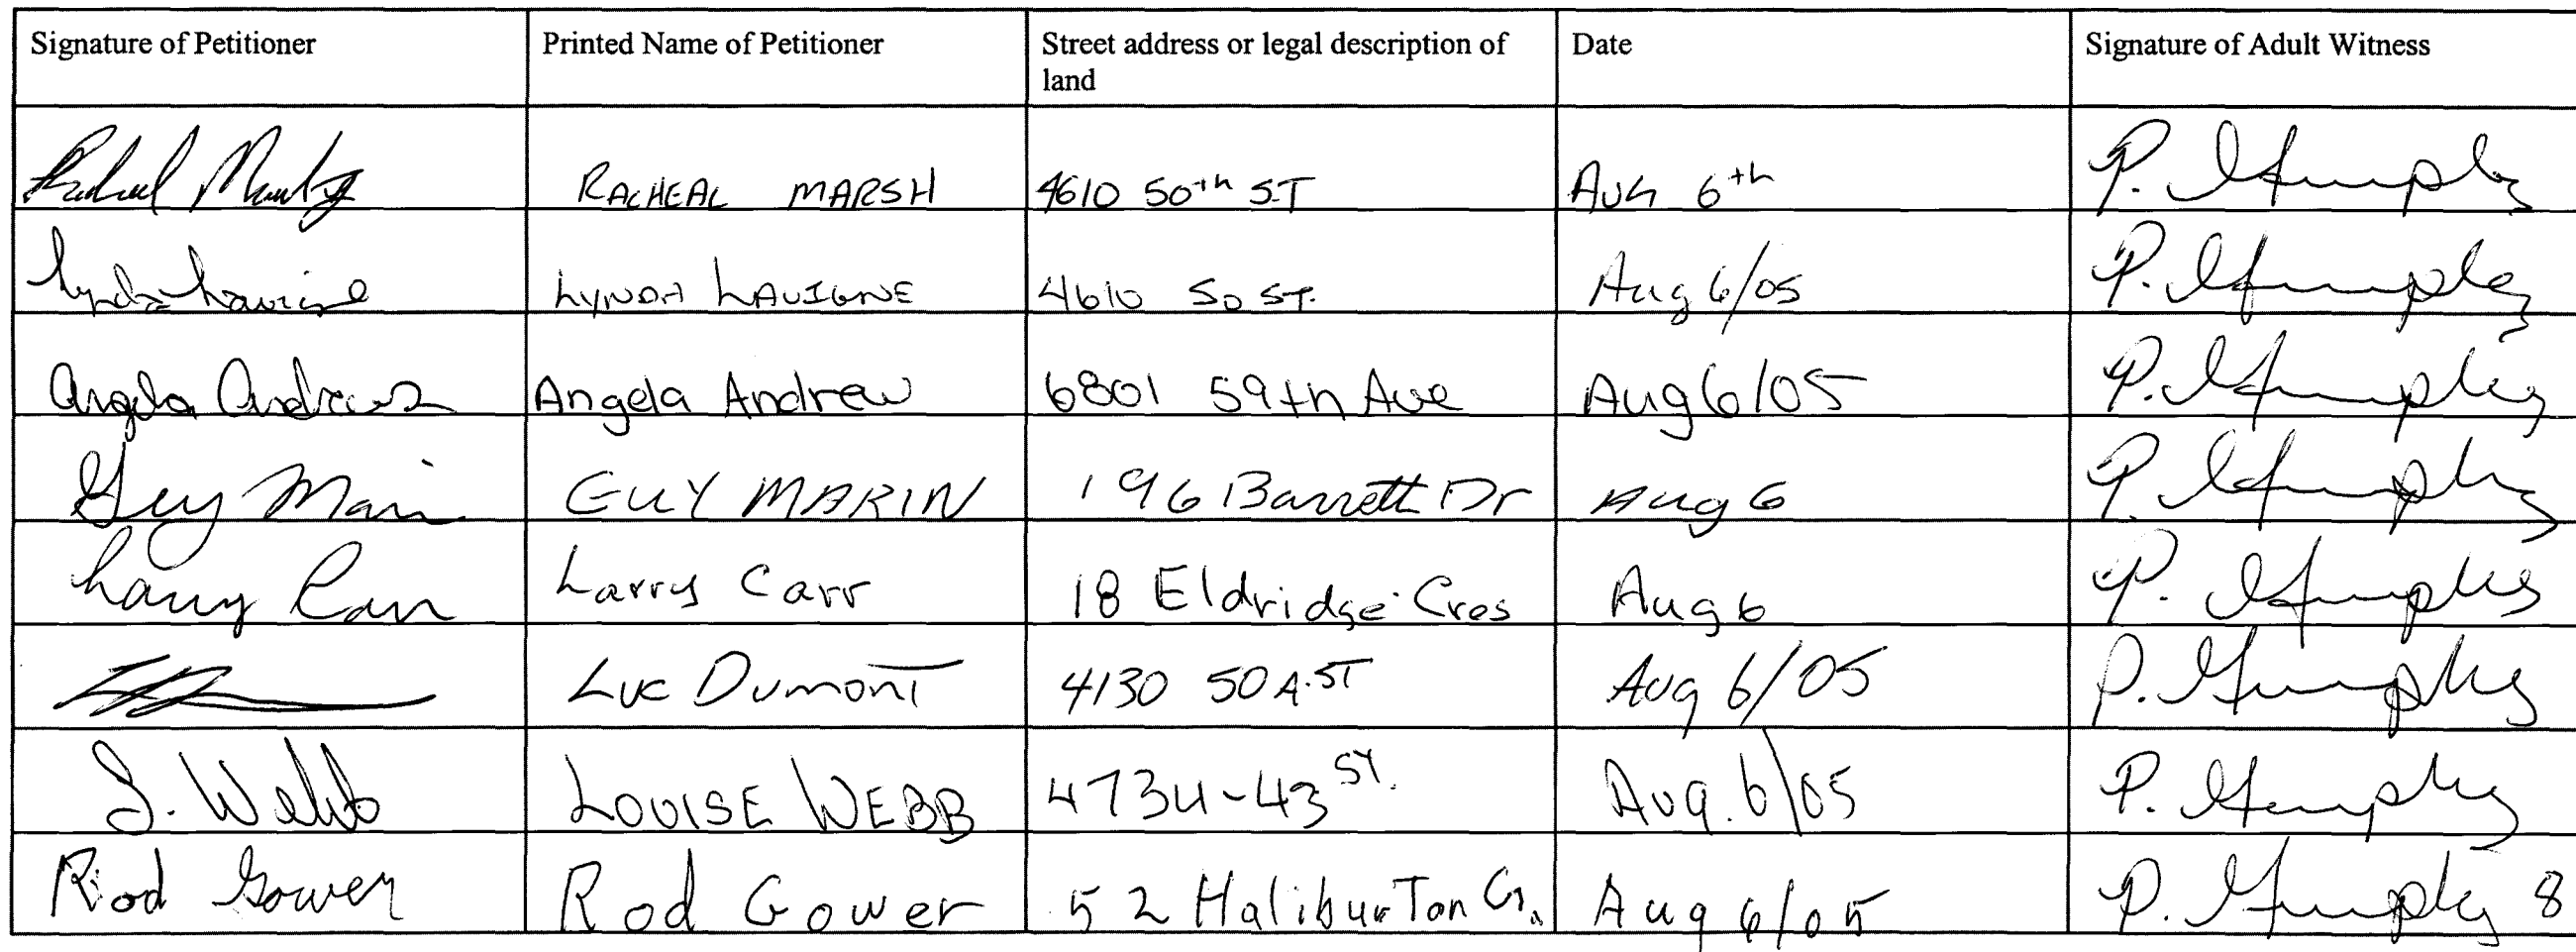 Signature of Petitioner Printed Name of Petitioner Street address or legal description of Date Signature of Adult Witness
land
RACHEAL MARSH 4610 50th ST AUG 6th P.
Lynda Lavigne LYNDA LAVIGNE 4610 50 ST. Aug 6/05 P.
Angela Andrew Angela Andrew 6801 59th Ave Aug 6/05 P.
Guy Marin GUY MARIN 196 Barrett Dr Aug 6 P.
Larry Carr Larry Carr 18 Eldridge Cres Aug 6 P.
Luc Dumont 4130 50A ST Aug 6/05 P.
L. Webb LOUISE WEBB 4734-43 ST. Aug. 6/05 P.
Rod Gower Rod Gower 52 Haliburton Aug 6/05 P. 8